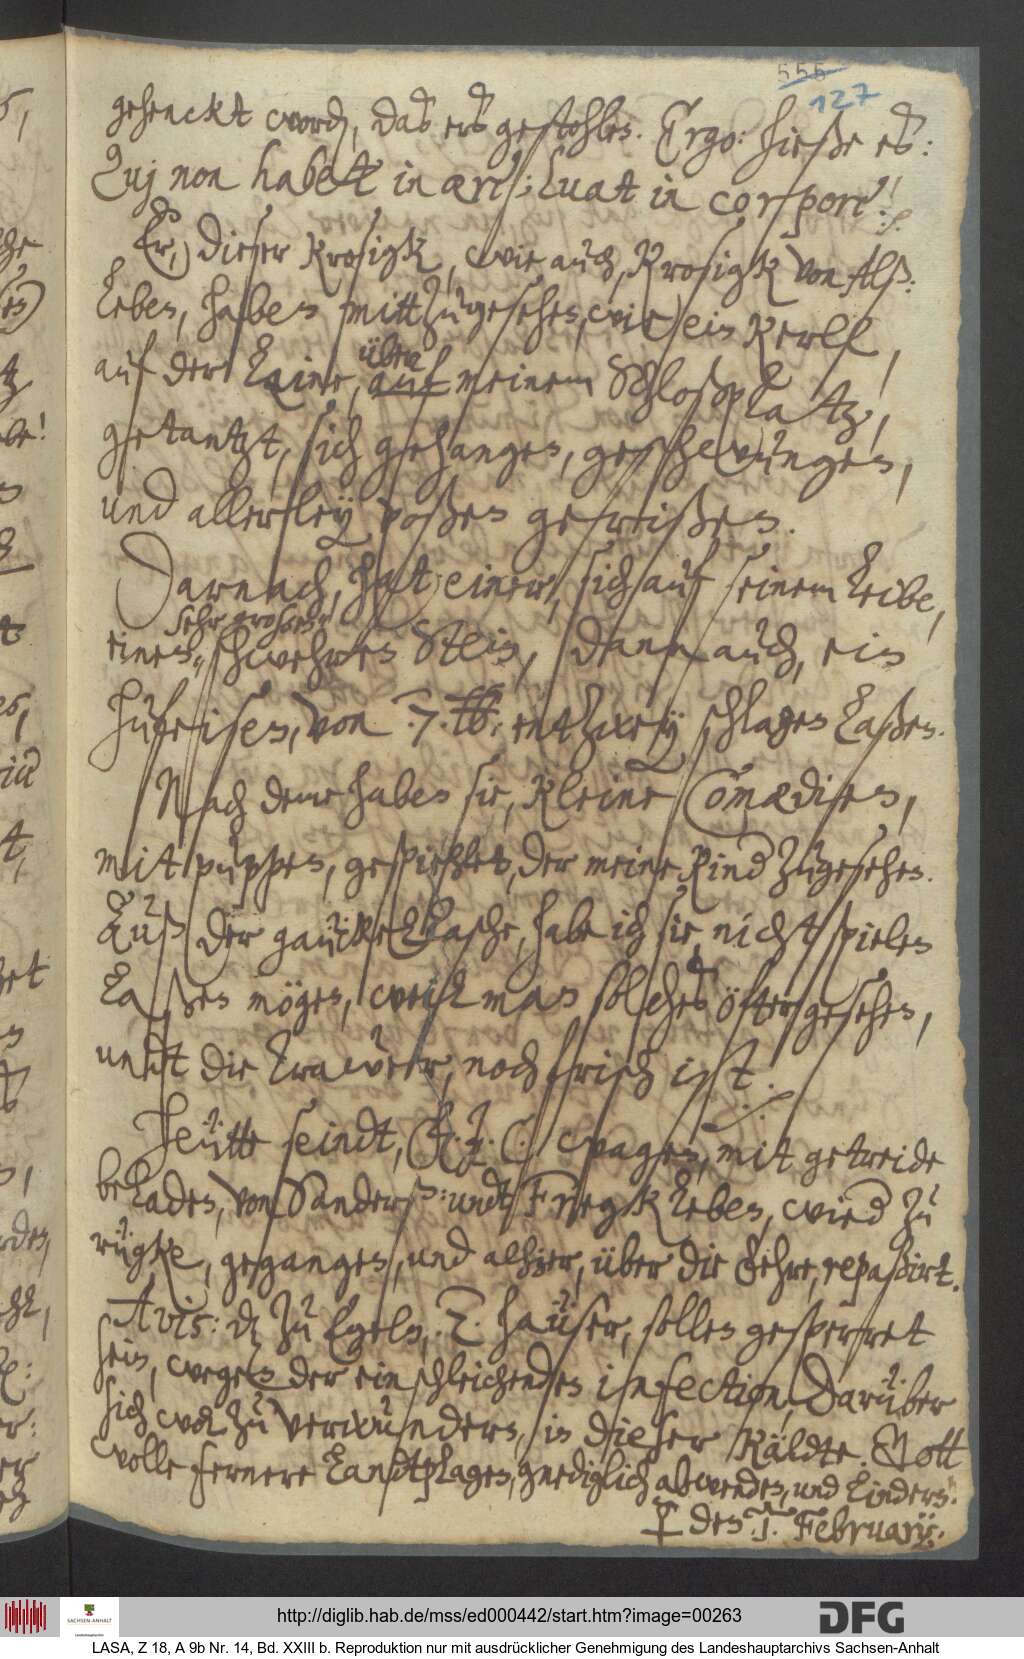 555
127
gehenckt word, daß ers gestohlen. Ergo: hieße es:
Quj non habett in ære; luat in corpore!
Er, dieser Krosigk, wie auch, Krosigk von Alß:
leben, haben mitt zugesehen, wie ein Kerll,
über
auf der Laine, auf meinem Schloßplatz,
getantzt, sich gehangen, geschwungen,
und allerley poßen gerißen.
Darnach, hat einer, sich auf seinem Leibe,
sehr großen,
einen, schwehren Stein, dann auch, ein
hufeisen, von .7. ℔: entzwey schlagen laßen.
Nach deme haben sie, kleine Comœdien,
mit puppen, gespiehlet, der meine Kind zugesehen.
Auß der gauckelTasche, habe ich sie, nicht spielen
laßen mögen, weil man solches öfter gesehen,
undt die Trawer, noch frisch ist.
Heütte seindt, wagen, mit getreide
beladen, von Sanderß: undt Friegkleben, wied zu
rügke, geganngen, und alhier, über die Fehre, repassirt.
Avis: d zu Egeln, .2. haüser, sollen gesperret
sein, wegen der einschleichenden infection, Darüber
sich wol zu verwundern, in dieser Käldte. Gott
wolle fernere Landtplagen, gnediglich abwenden, und lindern.
♀ den .1. February:
http://diglib.hab.de/mss/ed000442/start.htm?image=00263
SACHSEN-ANHALT
DFG
LASA, Z 18, A 9b Nr. 14, Bd. XXIII b. Reproduktion nur mit ausdrücklicher Genehmigung des Landeshauptarchivs Sachsen-Anhalt